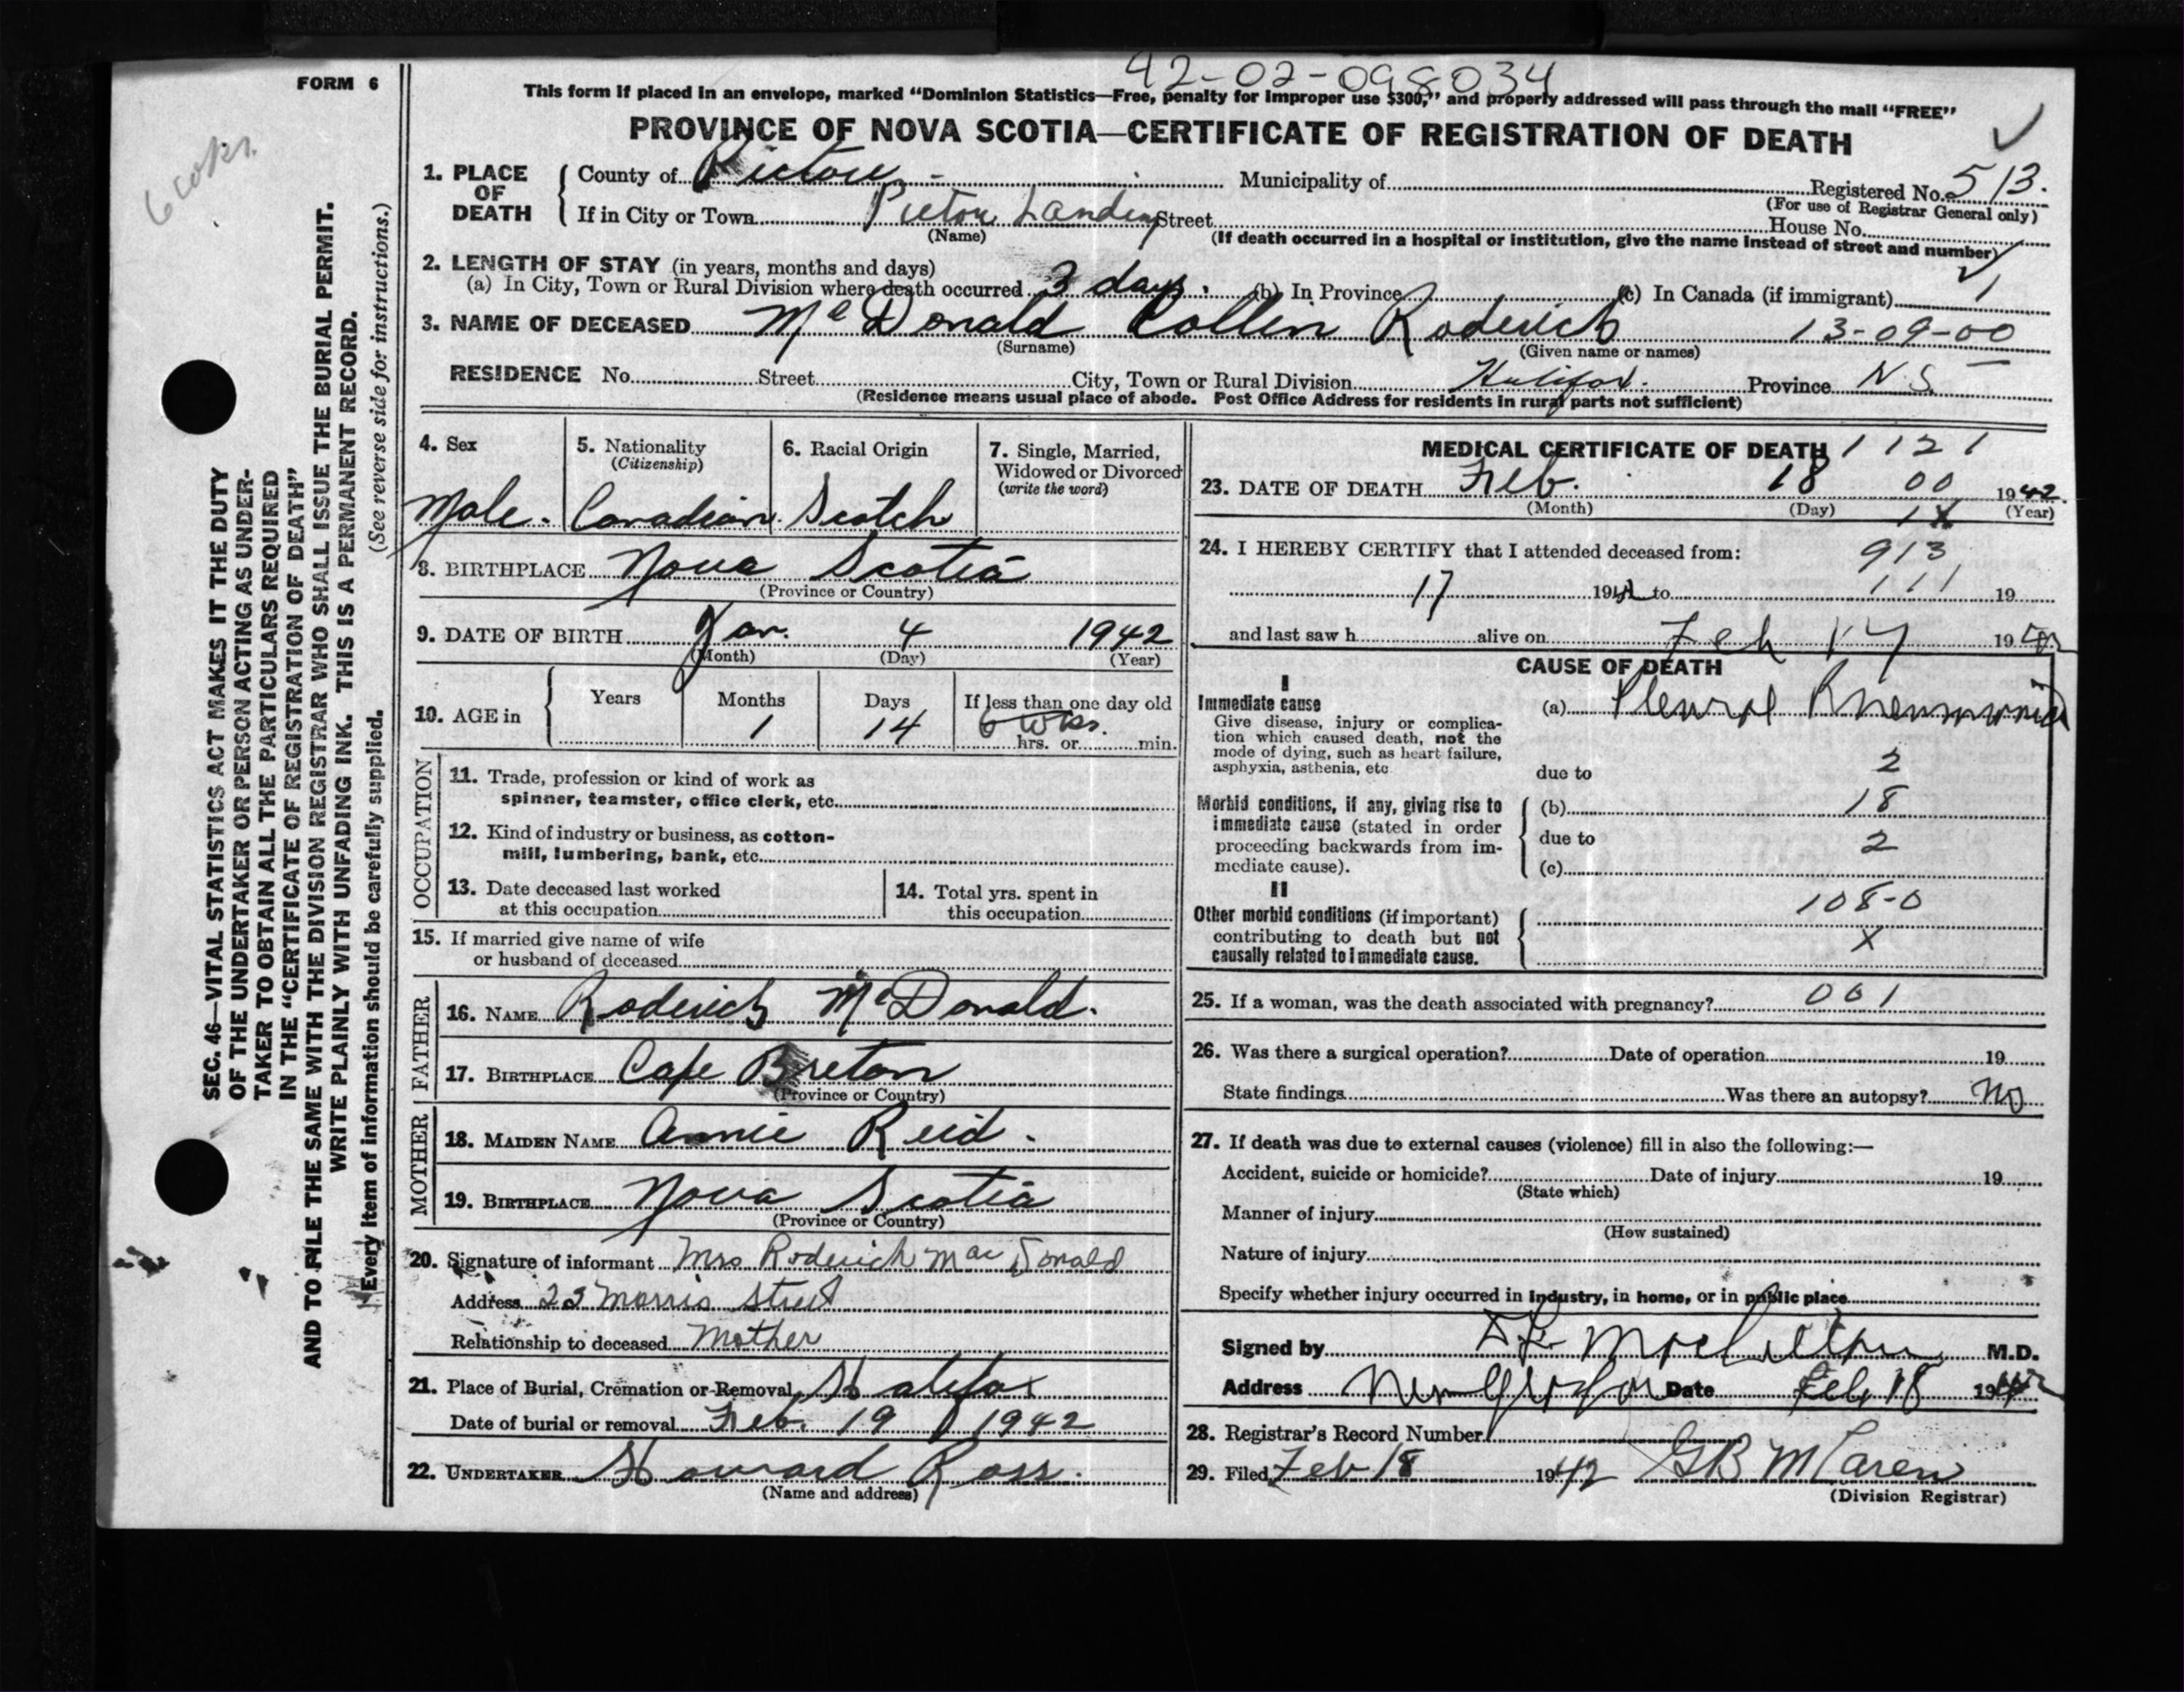 42-02-098034
FORM 6
This form if placed in an envelope, marked "Dominion Statistics—Free, penalty for improper use $300," and properly addressed will pass through the mail "FREE"
PROVINCE OF NOVA SCOTIA—CERTIFICATE OF REGISTRATION OF DEATH
1. PLACE OF DEATH
County of Pictou Municipality of Registered No. 513.
(For use of Registrar General only)
If in City or Town Pictou Landing Street House No.
(Name) (If death occurred in a hospital or institution, give the name instead of street and number)
2. LENGTH OF STAY (in years, months and days)
(a) In City, Town or Rural Division where death occurred 3 days. (b) In Province (c) In Canada (if immigrant)
3. NAME OF DECEASED McDonald Collin Roderick 13-09-00
(Surname) (Given name or names)
RESIDENCE No. Street City, Town or Rural Division Halifax. Province N.S.
(Residence means usual place of abode. Post Office Address for residents in rural parts not sufficient)
4. Sex
Male.
5. Nationality
(Citizenship)
Canadian.
6. Racial Origin
Scotch
7. Single, Married,
Widowed or Divorced
(write the word)
8. BIRTHPLACE Nova Scotia
(Province or Country)
9. DATE OF BIRTH Jan. 4 1942
(Month) (Day) (Year)
10. AGE in
Years Months Days If less than one day old
1 14 6 wks.
hrs. or min.
OCCUPATION
11. Trade, profession or kind of work as
spinner, teamster, office clerk, etc.
12. Kind of industry or business, as cotton-
mill, lumbering, bank, etc.
13. Date deceased last worked
at this occupation
14. Total yrs. spent in
this occupation
15. If married give name of wife
or husband of deceased
FATHER
16. NAME Roderick McDonald.
17. BIRTHPLACE Cape Breton
(Province or Country)
MOTHER
18. MAIDEN NAME Annie Reid.
19. BIRTHPLACE Nova Scotia
(Province or Country)
20. Signature of informant Mrs Roderick MacDonald
Address 23 Morris Street
Relationship to deceased Mother
21. Place of Burial, Cremation or Removal Halifax
Date of burial or removal Feb. 19 1942
22. UNDERTAKER Howard Ross.
(Name and address)
MEDICAL CERTIFICATE OF DEATH 1121
23. DATE OF DEATH Feb. 18 00 1942.
(Month) (Day) (Year)
24. I HEREBY CERTIFY that I attended deceased from: 913
17 1942 to 111 19
and last saw h alive on Feb 17 1942
CAUSE OF DEATH
I
Immediate cause
Give disease, injury or complica-
tion which caused death, not the
mode of dying, such as heart failure,
asphyxia, asthenia, etc
(a) Pleural Pneumonia
due to 2
Morbid conditions, if any, giving rise to
immediate cause (stated in order
proceeding backwards from im-
mediate cause).
(b) 18
due to 2
(c)
II
Other morbid conditions (if important)
contributing to death but not
causally related to immediate cause.
108-0
X
25. If a woman, was the death associated with pregnancy? 001
26. Was there a surgical operation? Date of operation 19
State findings Was there an autopsy? No
27. If death was due to external causes (violence) fill in also the following:—
Accident, suicide or homicide? Date of injury 19
(State which)
Manner of injury
(How sustained)
Nature of injury
Specify whether injury occurred in industry, in home, or in public place
Signed by M.D.
Address New Glasgow Date Feb 18 1942
28. Registrar's Record Number
29. Filed Feb 18 1942 GB McLaren
(Division Registrar)
6 wks.
SEC. 46—VITAL STATISTICS ACT MAKES IT THE DUTY
OF THE UNDERTAKER OR PERSON ACTING AS UNDER-
TAKER TO OBTAIN ALL THE PARTICULARS REQUIRED
IN THE "CERTIFICATE OF REGISTRATION OF DEATH"
AND TO FILE THE SAME WITH THE DIVISION REGISTRAR WHO SHALL ISSUE THE BURIAL PERMIT.
WRITE PLAINLY WITH UNFADING INK. THIS IS A PERMANENT RECORD.
Every item of information should be carefully supplied. (See reverse side for instructions.)